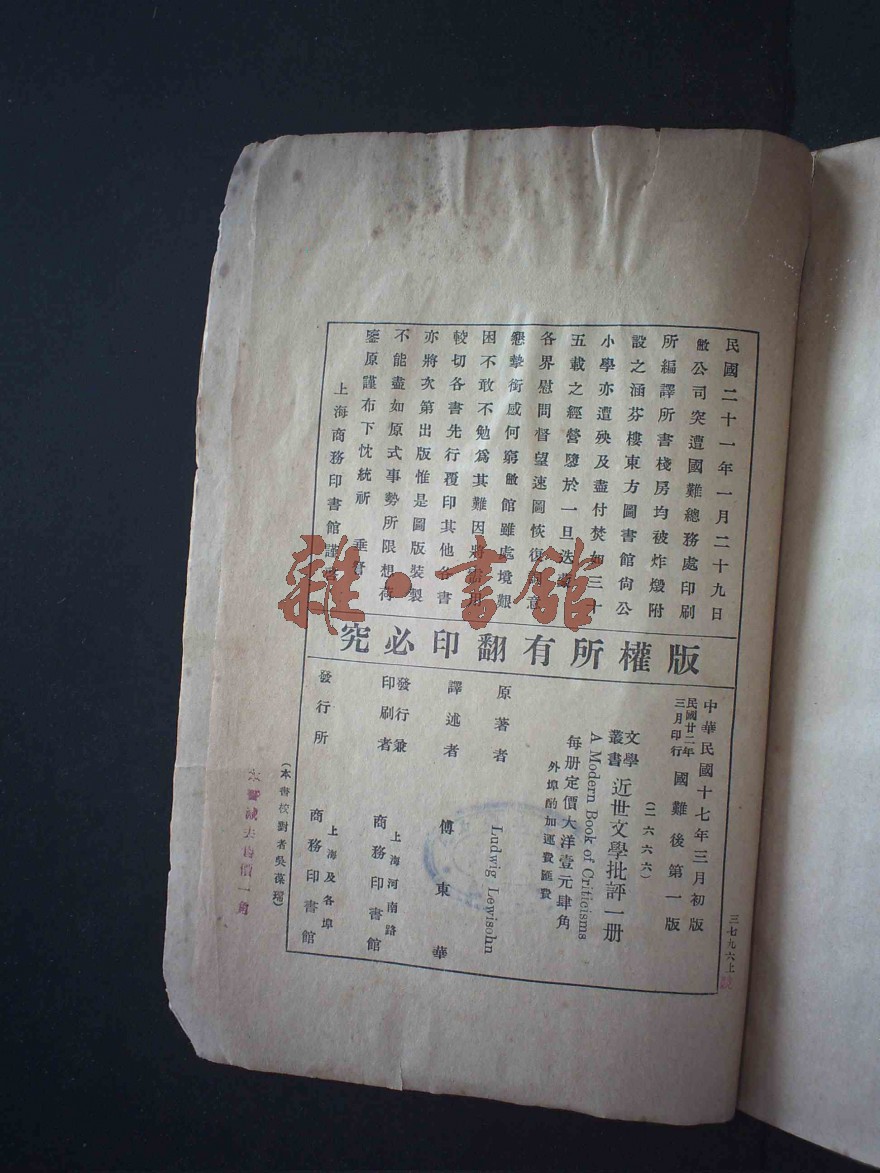 民國二十一年一月二十九日
敝公司突遭國難總務處印刷
所編譯所書棧房均被炸燬附
設之涵芬樓東方圖書館尙公
小學亦遭殃及盡付焚如三十
五載之經營隳於一旦迭
各界慰問督望速圖恢復 意
懇摯銜感何窮敝館雖處境艱
困不敢不勉爲其難因將 用
較切各書先行覆印其他各書
亦將次第出版惟是圖版裝製
不能盡如原式事勢所限想荷
鑒原謹布下忱統祈 垂詧
上海商務印書館謹啓
版權所有翻印必究
中華民國十七年三月初版
民國廿二年三月印行 國難後第一版
(二六六六)
文學叢書 近世文學批評一册
A Modern Book of Criticisms
每册定價大洋壹元肆角
外埠酌加運費匯費
原著者 Ludwig Lewisohn
譯述者 傅東華
發行兼印刷者 上海河南路 商務印書館
發行所 上海及各埠 商務印書館
(本書校對者吳葆 )
三七九六上
本書減去售價一角
雜·書館